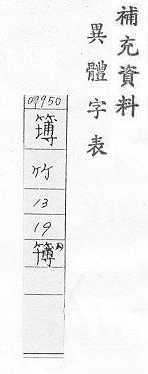 補充資料
異體字表
09950
簿
竹
13
19
簿